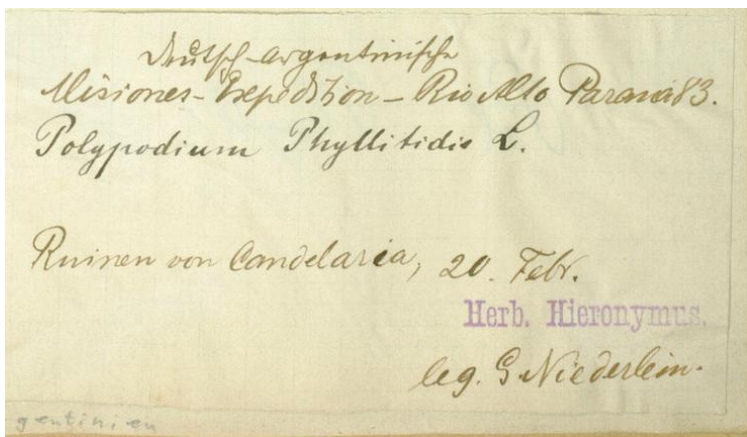 Deutsch-Argentinische
Misiones-Expedition - Rio Alto Paraná 83.
Polypodium Phyllitidis L.
Ruinen von Candelaria, 20. Febr.
Herb. Hieronymus.
leg. G Niederlein.
gentinien